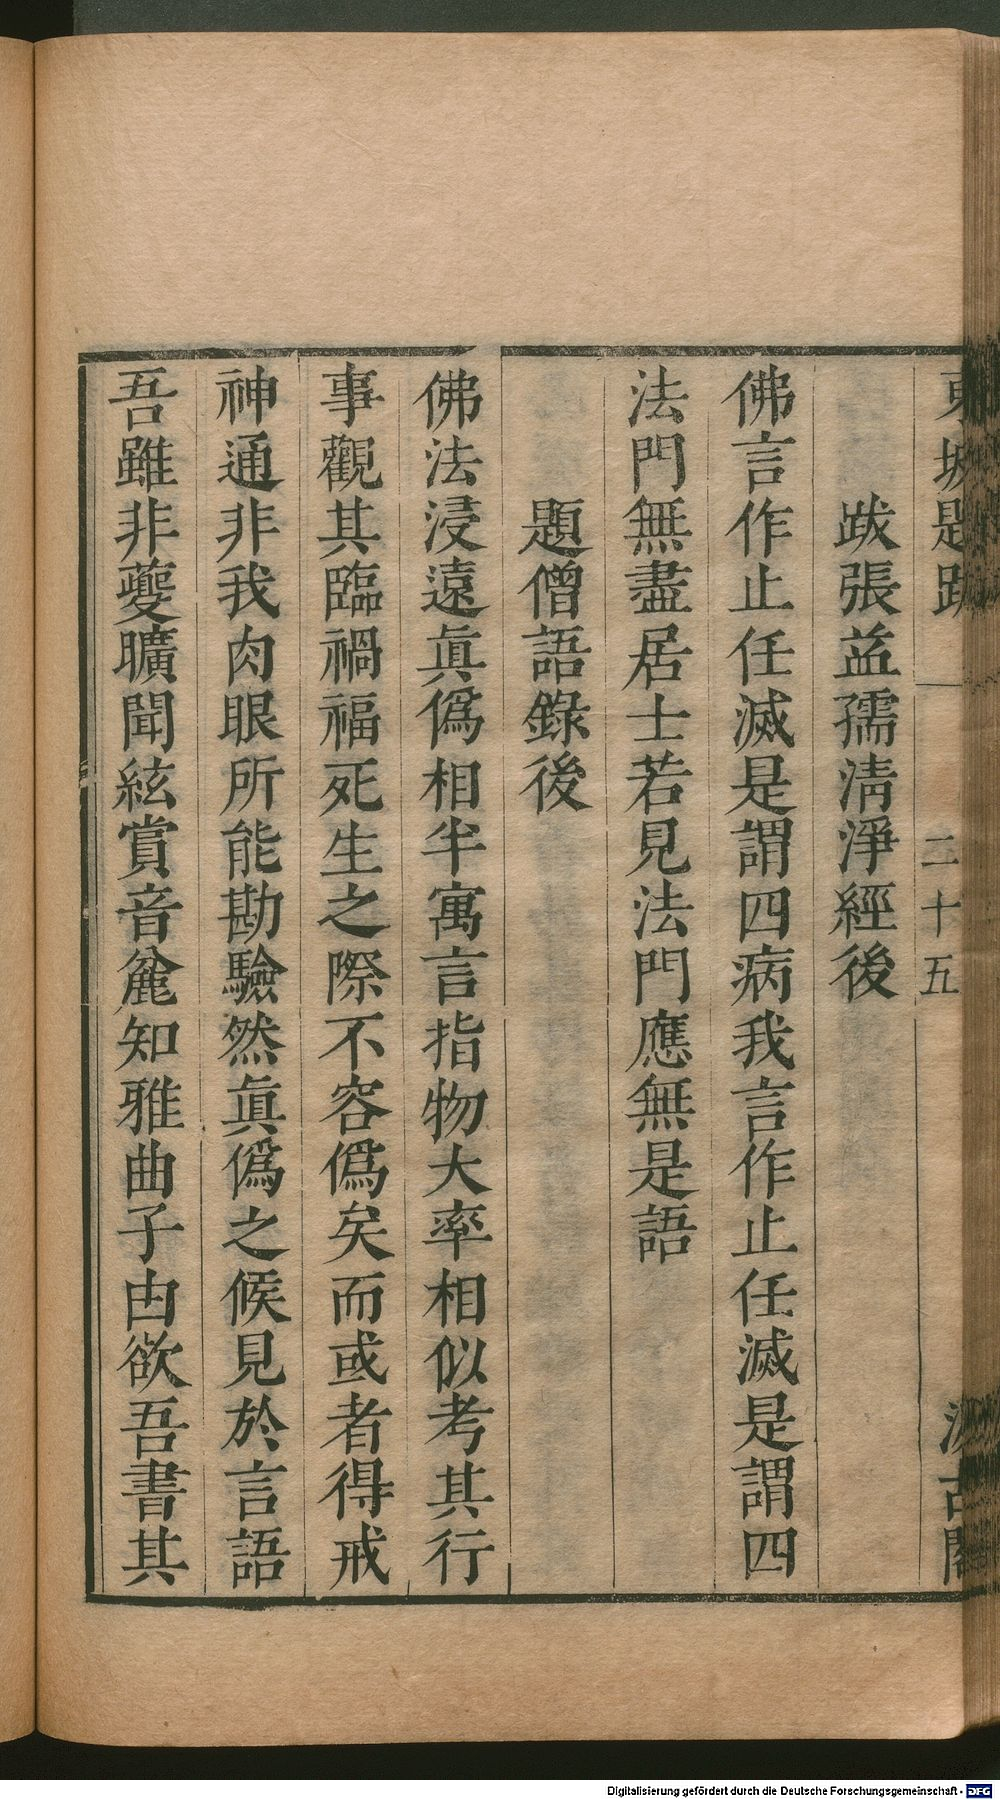 東坡題跋 一 二十五 汲古閣
跋張益孺淸淨經後
佛言作止任滅是謂四病我言作止任滅是謂四
法門無盡居士若見法門應無是語
題僧語錄後
佛法浸遠眞僞相半寓言指物大率相似考其行
事觀其臨禍福死生之際不容僞矣而或者得戒
神通非我肉眼所能勘驗然眞僞之候見於言語
吾雖非夔曠聞絃賞音麄知雅曲子由欲吾書其
Digitalisierung gefördert durch die Deutsche Forschungsgemeinschaft - DFG